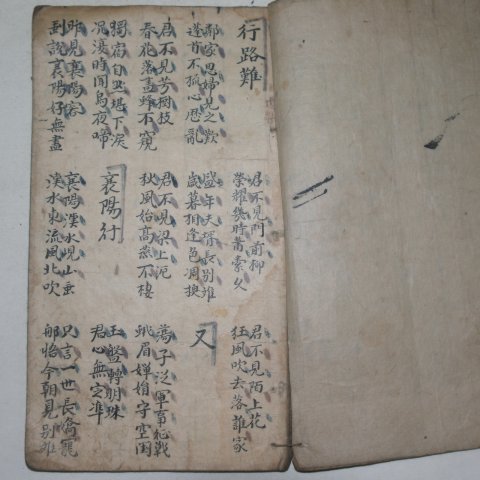 行路難
君不見門前柳
榮耀幾時蕭索久
君不見陌上花
狂風吹去落誰家
鄰家思婦見之歎
蓬首不孤心歷亂
盛年夫壻長別離
歲暮相逢色凋換
又
君不見芳樹枝
春花落盡蜂不窺
君不見梁上泥
秋風始高燕不棲
蕩子從軍事征戰
蛾眉嬋娟守空閨
獨宿自然堪下淚
況復時聞烏夜啼
襄陽行
玉盤轉明珠
君心無定準
昨見襄陽客
剩說襄陽好無盡
襄陽漢水峴山垂
漢水東流風北吹
只言一世長嬌寵
那悟今朝見別離